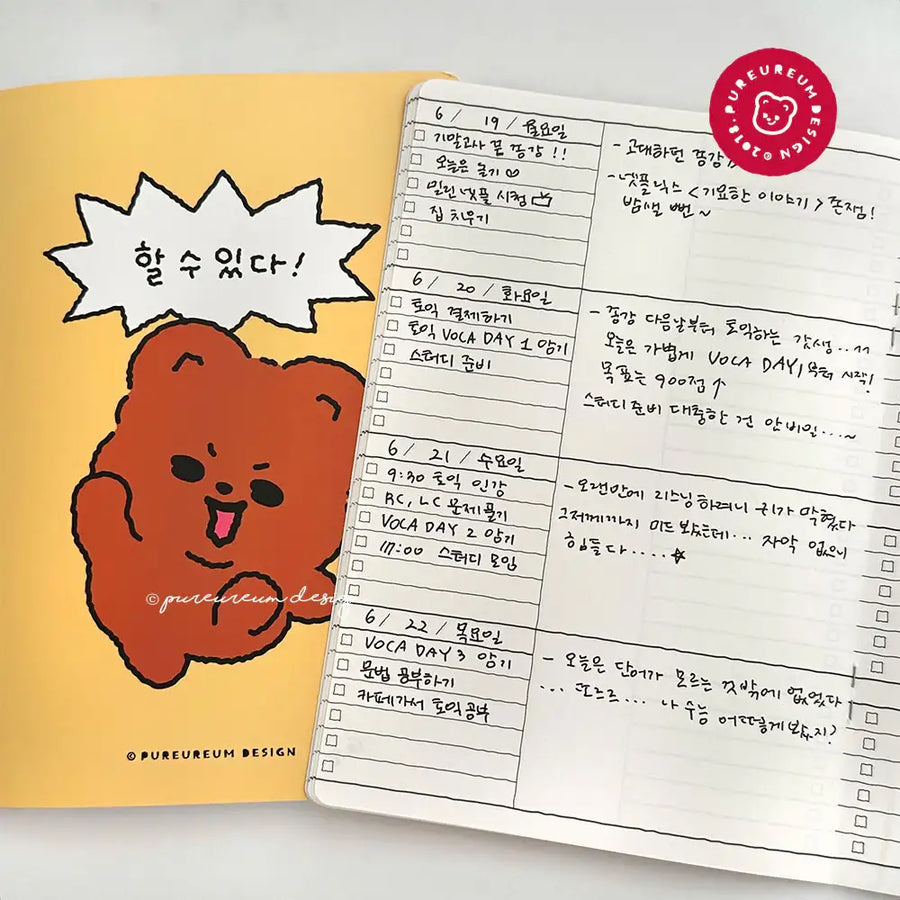 할 수 있다!
© PUREUREUM DESIGN
© pureureum design
PUREUREUM DESIGN © 2018.
6 / 19 / 월요일
기말고사 끝 종강!!
오늘은 놀기♡
밀린 넷플 시청
집 치우기
- 고대하던 종강
- 넷플릭스 <기묘한 이야기> 존잼!
밤샐 뻔~
6 / 20 / 화요일
토익 결제하기
토익 VOCA DAY 1 암기
스터디 준비
- 종강 다음날부터 토익하는 갓생..ㄲ
오늘은 가볍게 VOCA DAY1부터 시작!
목표는 900점↑
스터디 준비 대충한 건 안비밀...~
6 / 21 / 수요일
9:30 토익 인강
RC, LC 문제풀기
VOCA DAY 2 암기
17:00 스터디 모임
- 오랜만에 리스닝 하려니 귀가 막혔다
그저께까지 미드 봤는데... 자막 없으니
힘들다....☆
6 / 22 / 목요일
VOCA DAY 3 암기
문법 공부하기
카페가서 토익공부
- 오늘은 단어가 모르는 것밖에 없었다
... 또르르... 나 수능 어떻게 봤지?